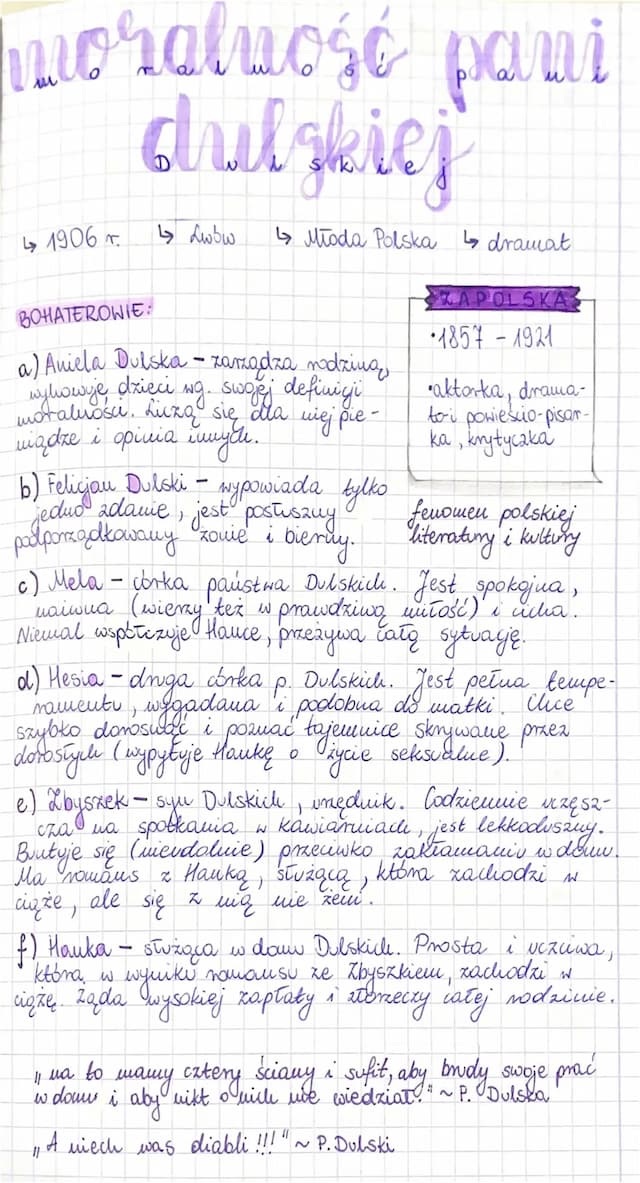 moralność pani
dulskiej
↳ 1906 r. ↳ Lwów ↳ Młoda Polska ↳ dramat
BOHATEROWIE:
ZAPOLSKA
•1857 - 1921
•aktorka, drama-
to- i powieścio-pisar-
ka, krytyczka
fenomen polskiej
literatury i kultury
a) Aniela Dulska - zarządza rodziną,
wychowuje dzieci wg. swojej definicji
moralności. Liczą się dla niej pie-
niądze i opinia innych.
b) Felicjan Dulski - wypowiada tylko
jedno zdanie, jest posłuszny
podporządkowany żonie i bierny.
c) Mela - córka państwa Dulskich. Jest spokojna,
naiwna (wierzy też w prawdziwą miłość) i cicha.
Niemal współczuje Hance, przeżywa całą sytuację.
d) Hesia - druga córka p. Dulskich. Jest pełna tempe-
ramentu, wygadana i podobna do matki. Chce
szybko dorosnąć i poznać tajemnice skrywane przez
dorosłych (wypytuje Hankę o życie seksualne).
e) Zbyszek - syn Dulskich, urzędnik. Codziennie uczęsz-
cza na spotkania w kawiarniach, jest lekkoduszny.
Buntuje się (nieudolnie) przeciwko zakłamaniu w domu.
Ma romans z Hanką, służącą, która zachodzi w
ciążę, ale się z nią nie żeni.
f) Hanka - służąca w domu Dulskich. Prosta i uczciwa,
która w wyniku romansu ze Zbyszkiem, zachodzi w
ciążę. Żąda wysokiej zapłaty i złorzeczy całej rodzinie.
„na to mamy cztery ściany i sufit, aby brudy swoje prać
w domu i aby nikt o nich nie wiedział." ~ P. Dulska
„A niech was diabli!!!" ~ P. Dulski